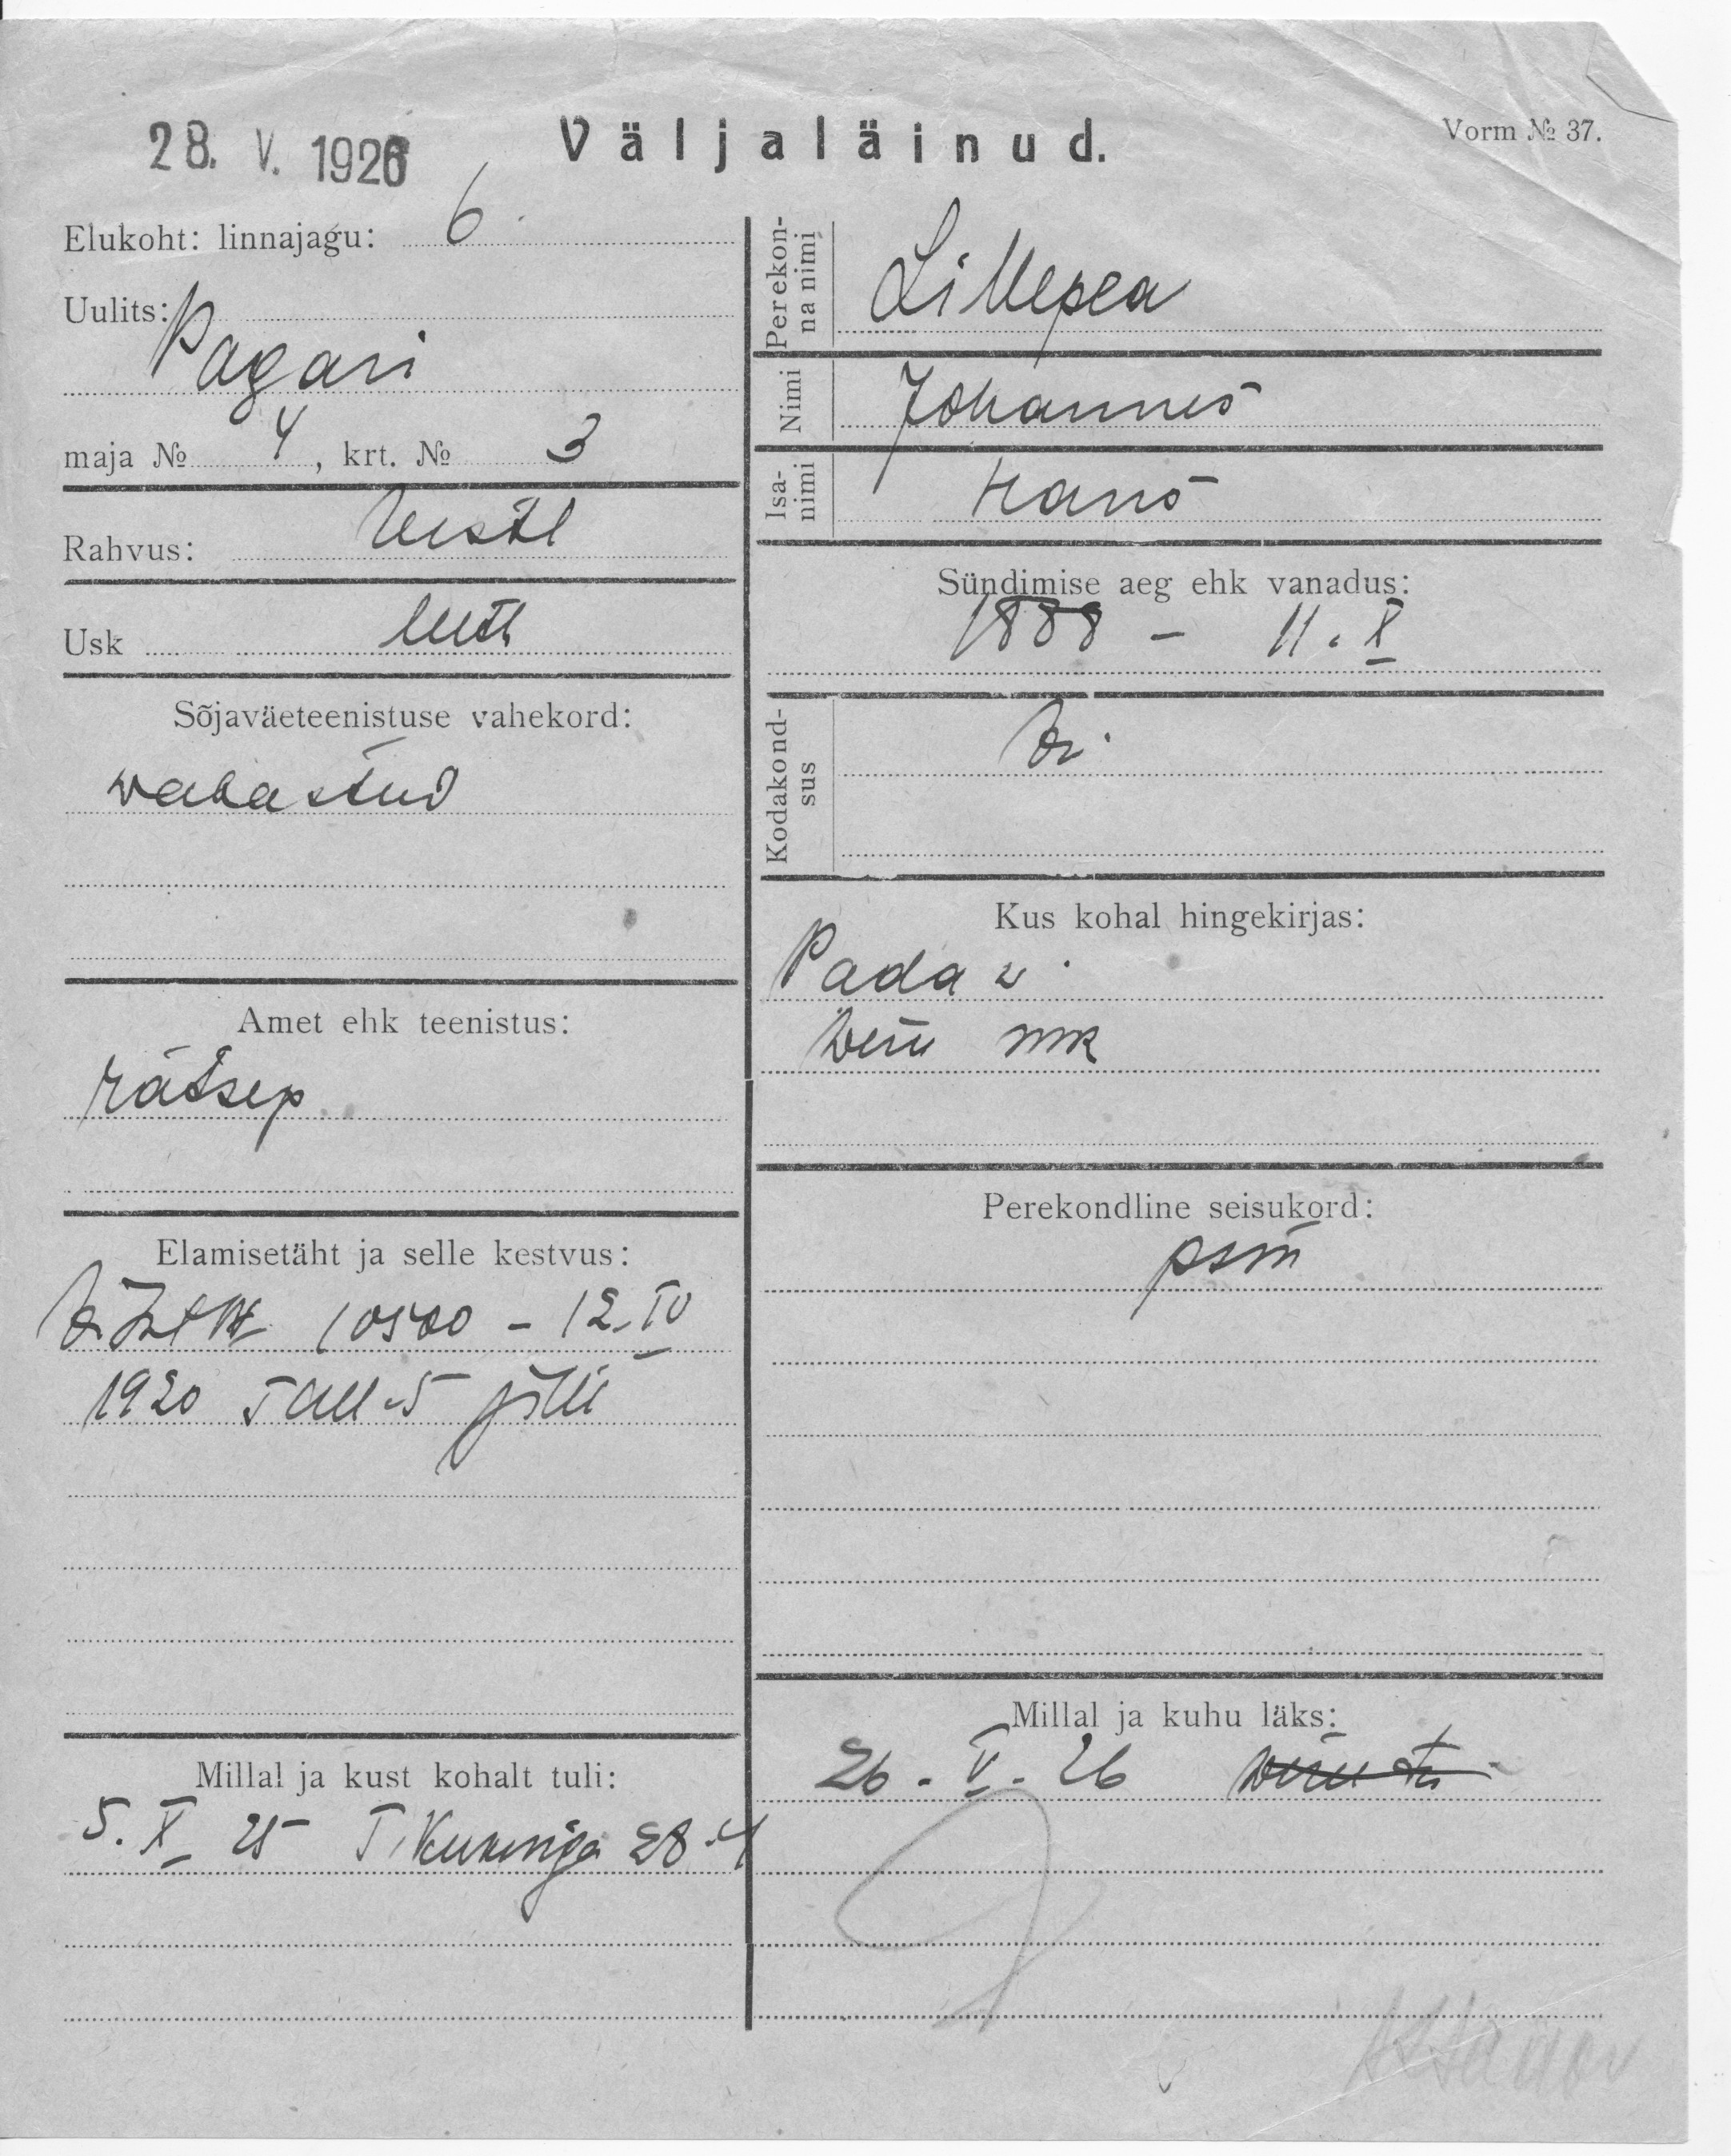 28. V. 1926
Väljaläinud.
Vorm № 37.
Elukoht: linnajagu: 6
Uulits:
Pagari
maja № 4, krt. № 3
Rahvus: Eesti
Usk luth
Sõjaväeteenistuse vahekord:
wabastud
Amet ehk teenistus:
rätsep
Elamisetäht ja selle kestvus:
10500 - 12.IV
1920 Tall-5
Millal ja kust kohalt tuli:
5. X 25 T. Kuninga 28-4
Perekon-
na nimi
Lillepea
Nimi
Johannes
Isa-
nimi
Hans
Sündimise aeg ehk vanadus:
1888 - 11. X
Kodakond-
sus
Kus kohal hingekirjas:
Pada w.
Wiru mk
Perekondline seisukord:
Millal ja kuhu läks:
26. V. 26